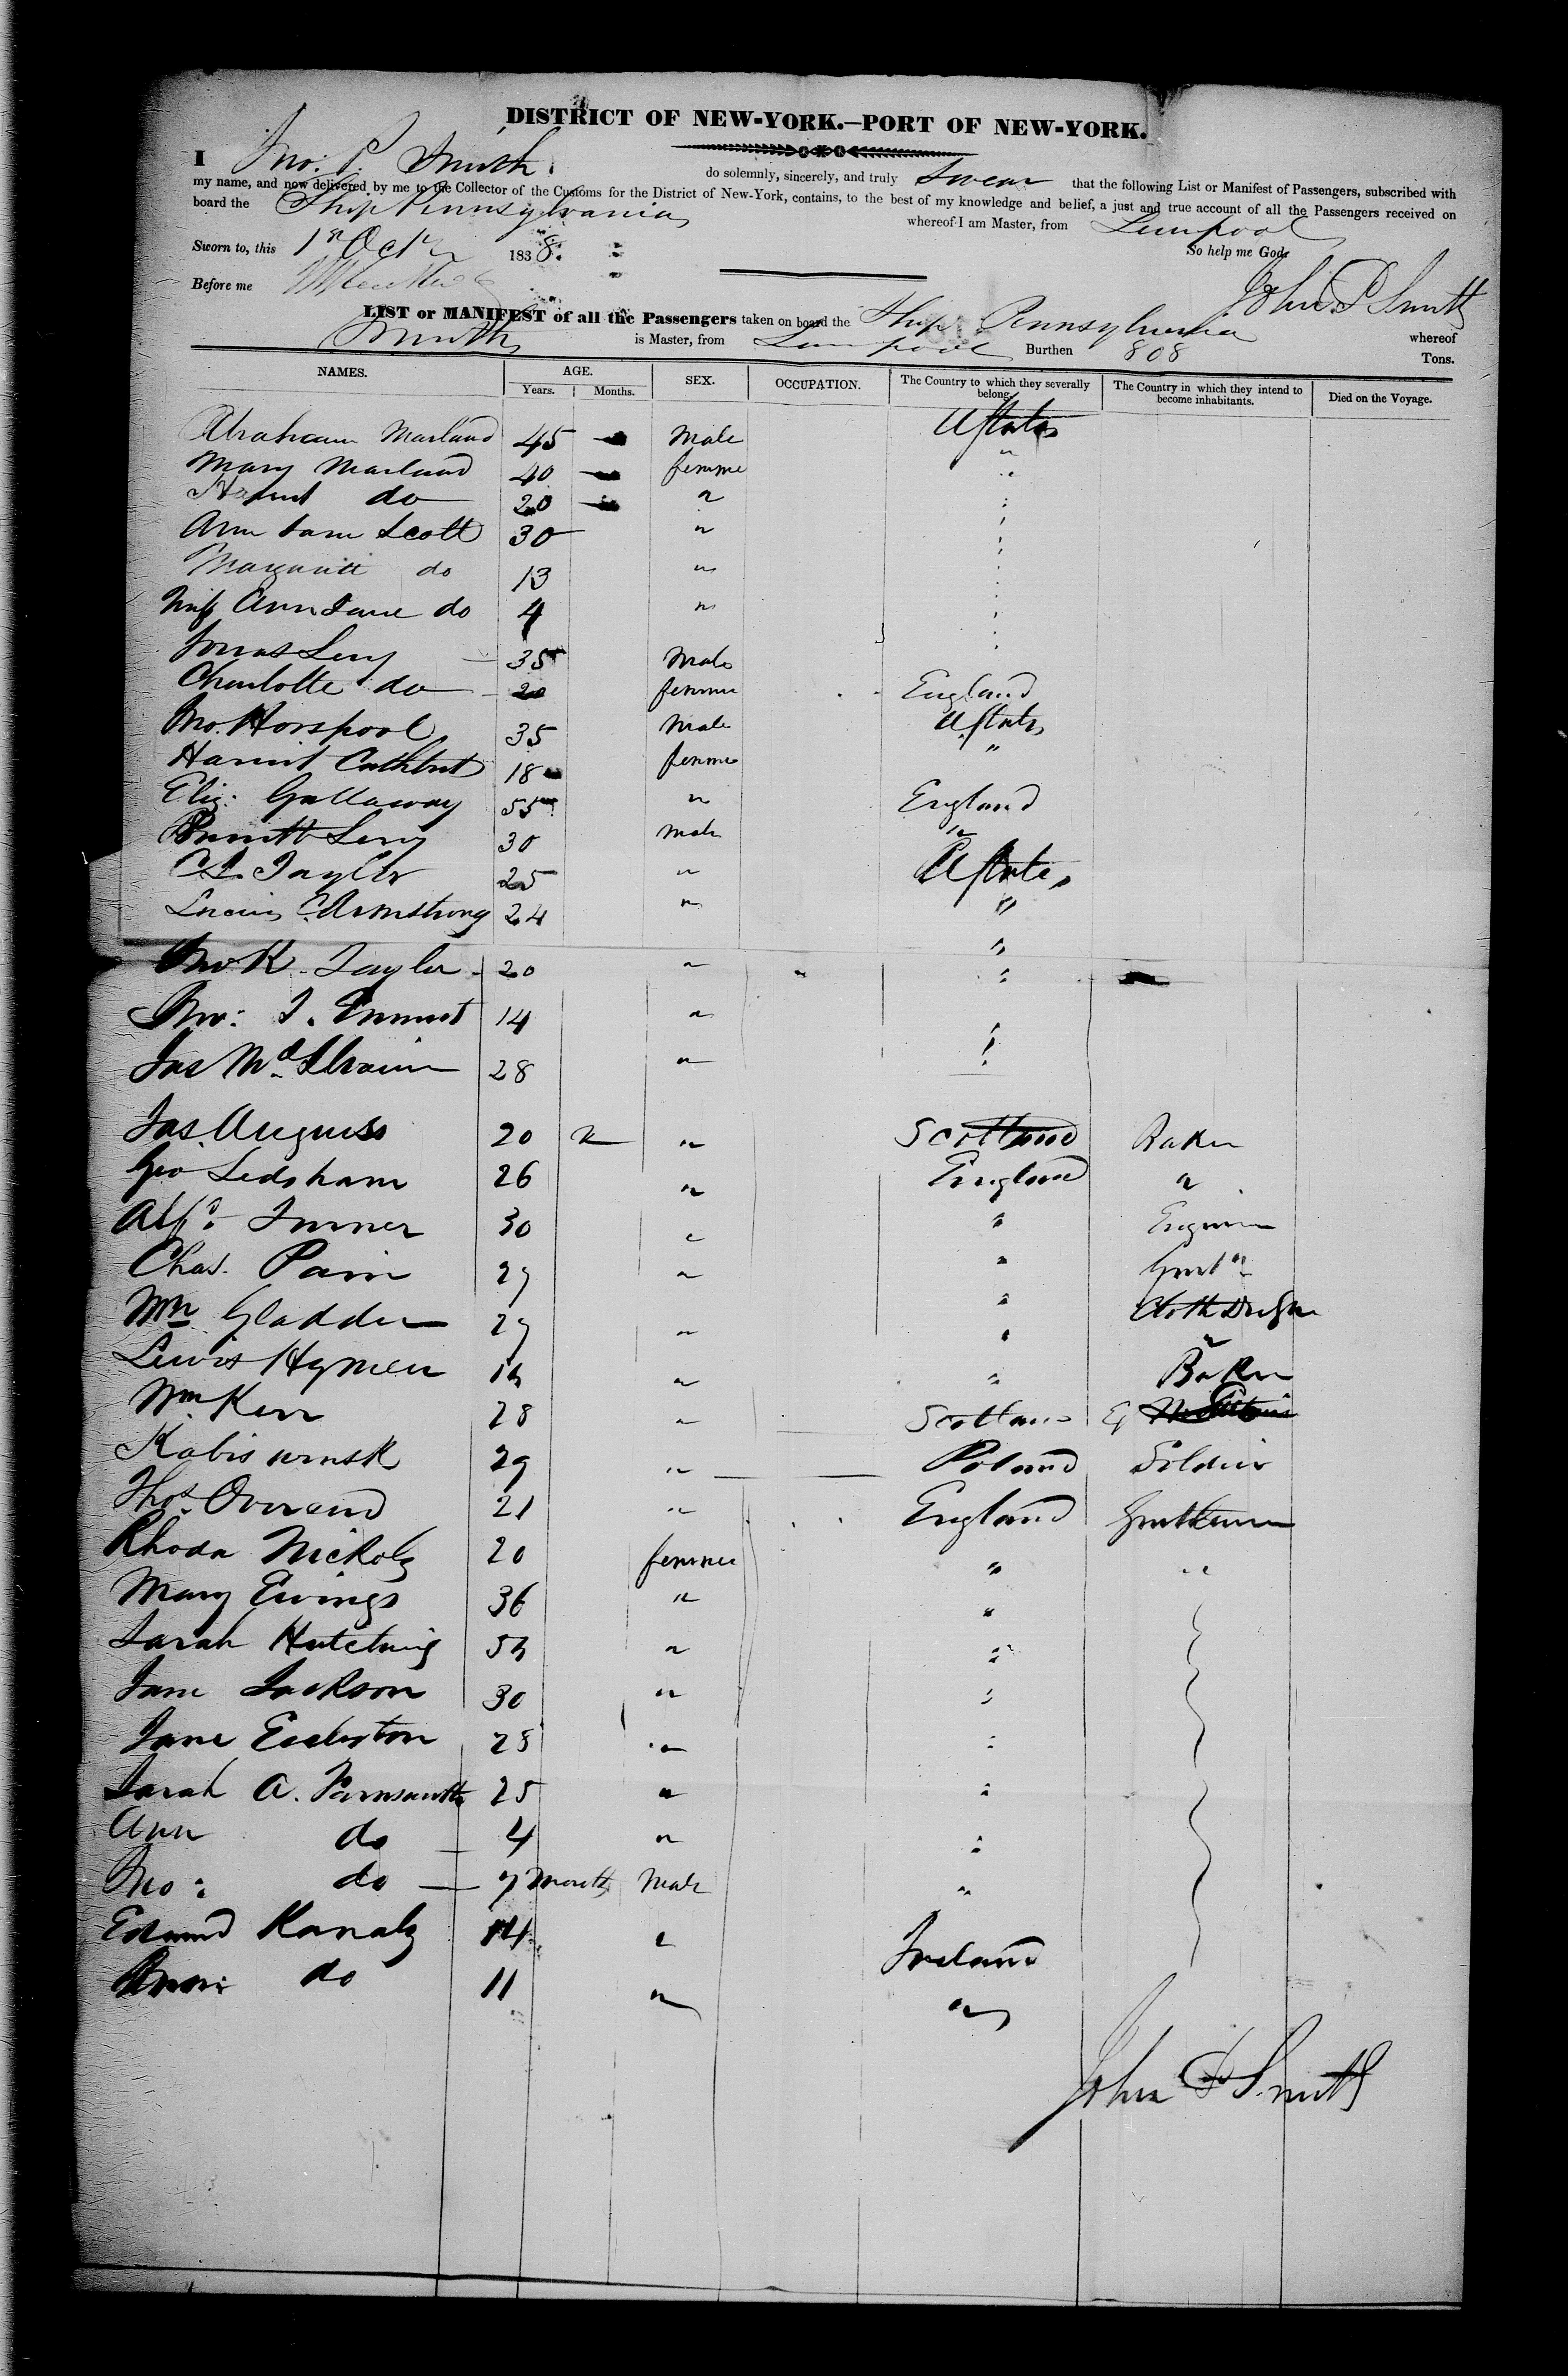 DISTRICT OF NEW-YORK.—PORT OF NEW-YORK.
I Jno: P. Smith do solemnly, sincerely, and truly Swear that the following List or Manifest of Passengers, subscribed with
my name, and now delivered by me to the Collector of the Customs for the District of New-York, contains, to the best of my knowledge and belief, a just and true account of all the Passengers received on
board the Ship Pennsylvania whereof I am Master, from Liverpool
Sworn to, this 1st Octr 1838. So help me God.
Before me
John P Smith
LIST or MANIFEST of all the Passengers taken on board the Ship Pennsylvania whereof
Smith is Master, from Liverpool Burthen 808 Tons.
NAMES. AGE. SEX. OCCUPATION. The Country to which they severally belong. The Country in which they intend to become inhabitants. Died on the Voyage.
Years. Months.
Abraham Marland 45 — Male UStates
Mary Marland 40 — femme "
Harriet do 20 — "
Ann Jane Scott 30 "
Margarett do 13 "
Miss Ann Jane do 4 "
Jonas Levy 35 Male
Charlotte do 20 femme England
Jno. Horspool 35 Male UStates
Harriet Cuthbert 18 femme "
Eliz: Gallaway 55 " England
Levy 30 male "
Taylor 25 " UStates
Armstrong 24 " "
Jno K. Taylor 20 " "
14 "
Jas 28 "
Jas. Anguss 20 " " Scotland Baker
Geo Ledsham 26 " England "
Alfd. Turner 30 " "
Chas. Pain 29 " " Gentn
Wm Gladden 29 " " Cloth
Lewis Hymen " " Baker
Wm. Kerr 28 " Scotland
29 " Poland Soldier
Thos. Overend 21 " England Gentleman
Rhoda Nickols 20 femme " "
Mary Ewings 36 " "
Sarah Hutchins " "
Jane Jackson 30 " "
Jane Eccleston 28 " "
Sarah A. 25 " "
Ann do 4 " "
Jno: do 7 Month Male "
Edmund 14 " Ireland
do 11 " "
John P Smith